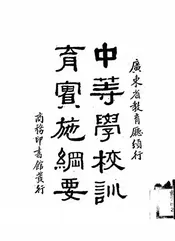 廣東省教育廳頒行
中等學校訓
育實施綱要
商務印書館發行